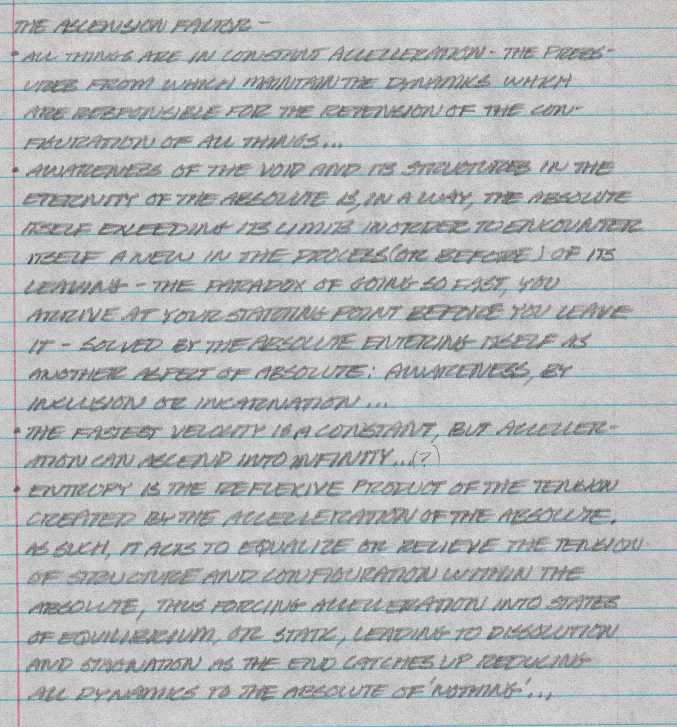 THE ASCENSION FACTOR -
• ALL THINGS ARE IN CONSTANT ACCELLERATION - THE PRESS-
URES FROM WHICH MAINTAIN THE DYNAMICS WHICH
ARE RESPONSIBLE FOR THE RETENSION OF THE CON-
FIGURATION OF ALL THINGS...
• AWARENESS OF THE VOID AND ITS STRUCTURES IN THE
ETERNITY OF THE ABSOLUTE IS, IN A WAY, THE ABSOLUTE
ITSELF EXCEEDING ITS LIMITS IN ORDER TO ENCOUNTER
ITSELF A NEW IN THE PROCESS (OR BEFORE) OF ITS
LEAVING - THE PARADOX OF GOING SO FAST, YOU
ARRIVE AT YOUR STARTING POINT BEFORE YOU LEAVE
IT - SOLVED BY THE ABSOLUTE ENTERING ITSELF AS
ANOTHER ASPECT OF ABSOLUTE: AWARENESS, BY
INCLUSION OR INCARNATION...
• THE FASTEST VELOCITY IS A CONSTANT, BUT ACCELLER-
ATION CAN ASCEND INTO INFINITY...(?)
• ENTROPY IS THE REFLEXIVE PRODUCT OF THE TENSION
CREATED BY THE ACCELLERATION OF THE ABSOLUTE.
AS SUCH, IT ACTS TO EQUALIZE OR RELIEVE THE TENSION
OF STRUCTURE AND CONFIGURATION WITHIN THE
ABSOLUTE, THUS FORCING ACCELLERATION INTO STATES
OF EQUILIBRIUM, OR STATIC, LEADING TO DISSOLUTION
AND STAGNATION AS THE END CATCHES UP REDUCING
ALL DYNAMICS TO THE ABSOLUTE OF 'NOTHING'...